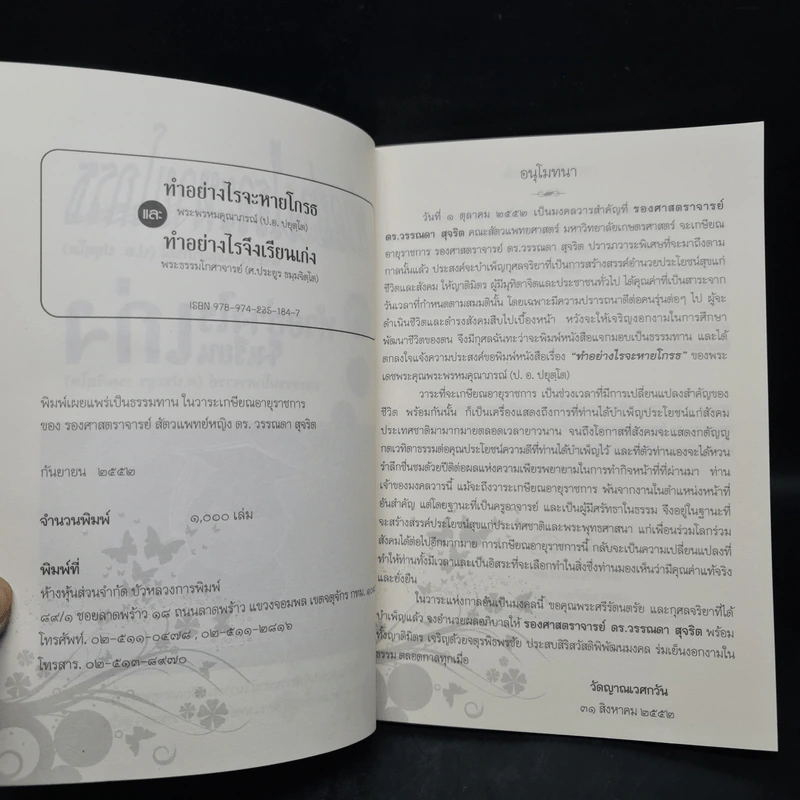 ทำอย่างไรจะหายโกรธ
และ
พระพรหมคุณาภรณ์ (ป.อ. ปยุตฺโต)
ทำอย่างไรจึงเรียนเก่ง
พระธรรมโกศาจารย์ (ศ.ประยูร ธมฺมจิตฺโต)
ISBN 978-974-235-184-7
พิมพ์เผยแพร่เป็นธรรมทาน ในวาระเกษียณอายุราชการ
ของ รองศาสตราจารย์ สัตวแพทย์หญิง ดร. วรรณดา สุจริต
กันยายน ๒๕๕๒
จำนวนพิมพ์ ๑,๐๐๐ เล่ม
พิมพ์ที่
ห้างหุ้นส่วนจำกัด บัวหลวงการพิมพ์
๘๙/๑ ซอยลาดพร้าว ๑๘ ถนนลาดพร้าว แขวงจอมพล เขตจตุจักร กทม.
โทรศัพท์. ๐๒-๕๑๑-๐๔๗๘ , ๐๒-๕๑๑-๒๘๑๖
โทรสาร. ๐๒-๕๑๓-๘๙๗๐
อนุโมทนา
วันที่ ๑ ตุลาคม ๒๕๕๒ เป็นมงคลวารสำคัญที่ รองศาสตราจารย์
ดร.วรรณดา สุจริต คณะสัตวแพทยศาสตร์ มหาวิทยาลัยเกษตรศาสตร์ จะเกษียณ
อายุราชการ รองศาสตราจารย์ ดร.วรรณดา สุจริต ปรารภวาระพิเศษที่จะมาถึงตาม
กาลนั้นแล้ว ประสงค์จะบำเพ็ญกุศลจริยาที่เป็นการสร้างสรรค์อำนวยประโยชน์สุขแก่
ชีวิตและสังคม ให้ญาติมิตร ผู้มีมุทิตาจิตและประชาชนทั่วไป ได้คุณค่าที่เป็นสาระจาก
วันเวลาที่กำหนดตามสมมตินั้น โดยเฉพาะมีความปรารถนาดีต่อคนรุ่นต่อๆ ไป ผู้จะ
ดำเนินชีวิตและดำรงสังคมสืบไปเบื้องหน้า หวังจะให้เจริญงอกงามในการศึกษา
พัฒนาชีวิตของตน จึงมีกุศลฉันทะว่าจะพิมพ์หนังสือแจกมอบเป็นธรรมทาน และได้
ตกลงใจแจ้งความประสงค์ขอพิมพ์หนังสือเรื่อง "ทำอย่างไรจะหายโกรธ" ของพระ
เดชพระคุณพระพรหมคุณาภรณ์ (ป. อ. ปยุตฺโต)
วาระที่จะเกษียณอายุราชการ เป็นช่วงเวลาที่มีการเปลี่ยนแปลงสำคัญของ
ชีวิต พร้อมกันนั้น ก็เป็นเครื่องแสดงถึงการที่ท่านได้บำเพ็ญประโยชน์แก่สังคม
ประเทศชาติมามากมายตลอดเวลายาวนาน จนถึงโอกาสที่สังคมจะแสดงกตัญญู
กตเวทิตาธรรมต่อคุณประโยชน์ความดีที่ท่านได้บำเพ็ญไว้ และที่ตัวท่านเองจะได้หวน
รำลึกชื่นชมด้วยปีติต่อผลแห่งความเพียรพยายามในการทำกิจหน้าที่ที่ผ่านมา ท่าน
เจ้าของมงคลวารนี้ แม้จะถึงวาระเกษียณอายุราชการ พ้นจากงานในตำแหน่งหน้าที่
อันสำคัญ แต่โดยฐานะที่เป็นครูอาจารย์ และเป็นผู้มีศรัทธาในธรรม จึงอยู่ในฐานะที่
จะสร้างสรรค์ประโยชน์สุขแก่ประเทศชาติและพระพุทธศาสนา แก่เพื่อนร่วมโลกร่วม
สังคมได้ต่อไปอีกมากมาย การเกษียณอายุราชการนี้ กลับจะเป็นความเปลี่ยนแปลงที่
ทำให้ท่านทั้งมีเวลาและเป็นอิสระที่จะเลือกทำในสิ่งซึ่งท่านมองเห็นว่ามีคุณค่าแท้จริง
และยั่งยืน
ในวาระแห่งกาลอันเป็นมงคลนี้ ขอคุณพระศรีรัตนตรัย และกุศลจริยาที่ได้
บำเพ็ญแล้ว จงอำนวยผลอภิบาลให้ รองศาสตราจารย์ ดร.วรรณดา สุจริต พร้อม
ทั้งญาติมิตร เจริญด้วยจตุรพิธพรชัย ประสบสิริสวัสดิพิพัฒนมงคล ร่มเย็นงอกงามใน
ธรรม ตลอดกาลทุกเมื่อ
วัดญาณเวศกวัน
๓๑ สิงหาคม ๒๕๕๒